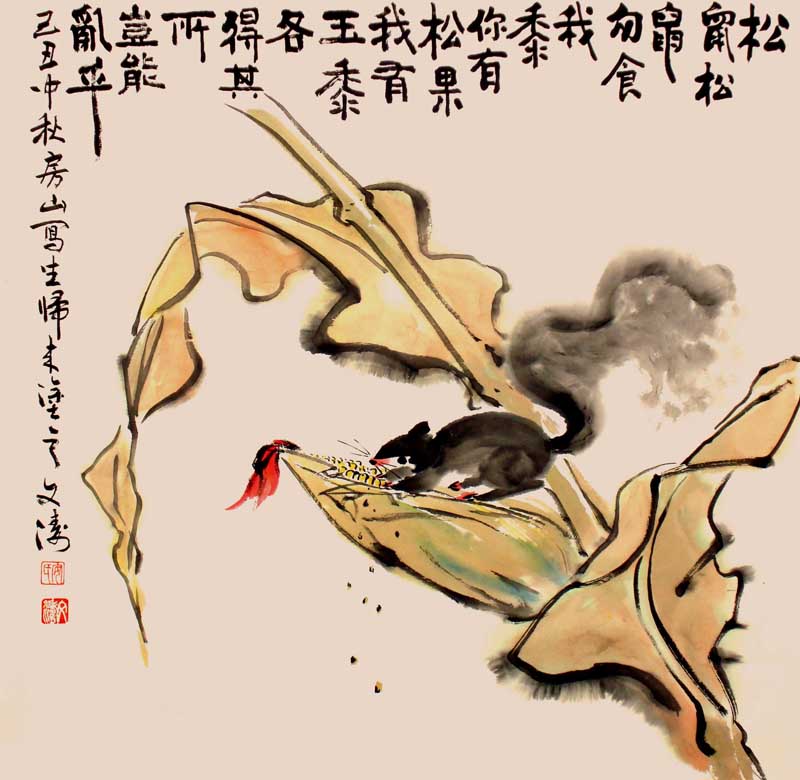 松
鼠松
鼠
勿食
我
黍
你有
松果
我有
玉黍
各
得其
所
豈能
亂乎
己丑中秋房山寫生帰来塗之文濤